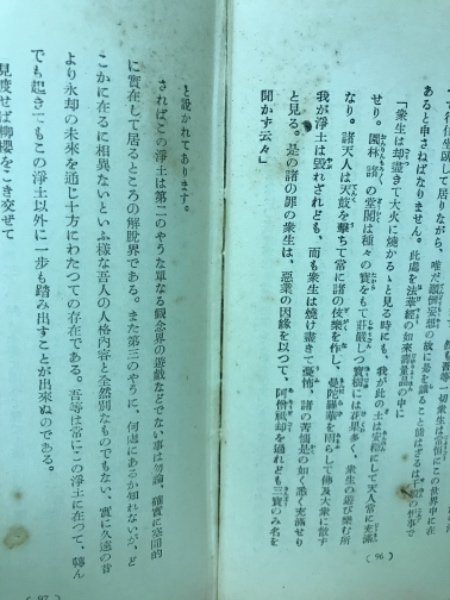 て往住坐臥して居りながら、唯だ
あると申さねばなりません。此處を法華經の如來壽量品の中に
「衆生は却盡きて大火に燒かるゝと見る時にも、我が此の土は安穩にして天人常に充滿
せり。園林 諸の堂閣は種々の寶をもて莊嚴しつ寶樹には花果多く、衆生の遊び樂む所
なり。諸天人は天鼓を擊ちて常に諸の伎樂を作し、曼陀羅華を雨らして佛及大衆に散す
我が淨土は毀れざれども、而も衆生は燒け盡きて憂怖、諸の苦惱是の如く悉く充滿せり
と見る。是の諸の罪の衆生は、惡業の因緣を以つて、阿僧祇却を過れども三寶のみ名を
聞かず云々」
(96)
と說かれてあります。
さればこの淨土は第二のやうな單なる觀念界の遊戲などでない事は勿論、確實に空間的
に實在して居るところの解脫界である。また第三のやうに、何處にあるか知れないが、ど
こかに在るに相異ないといふ樣な吾人の人格內容と全然別なものでもない、實に久遠の昔
より永却の未來を通じ十方にわたつての存在である。吾等は常にこの淨土に在つて、轉ん
でも起きてもこの淨土以外に一步も踏み出すことが出來ぬのである。
見度せば柳櫻をこき交ぜて
(97)